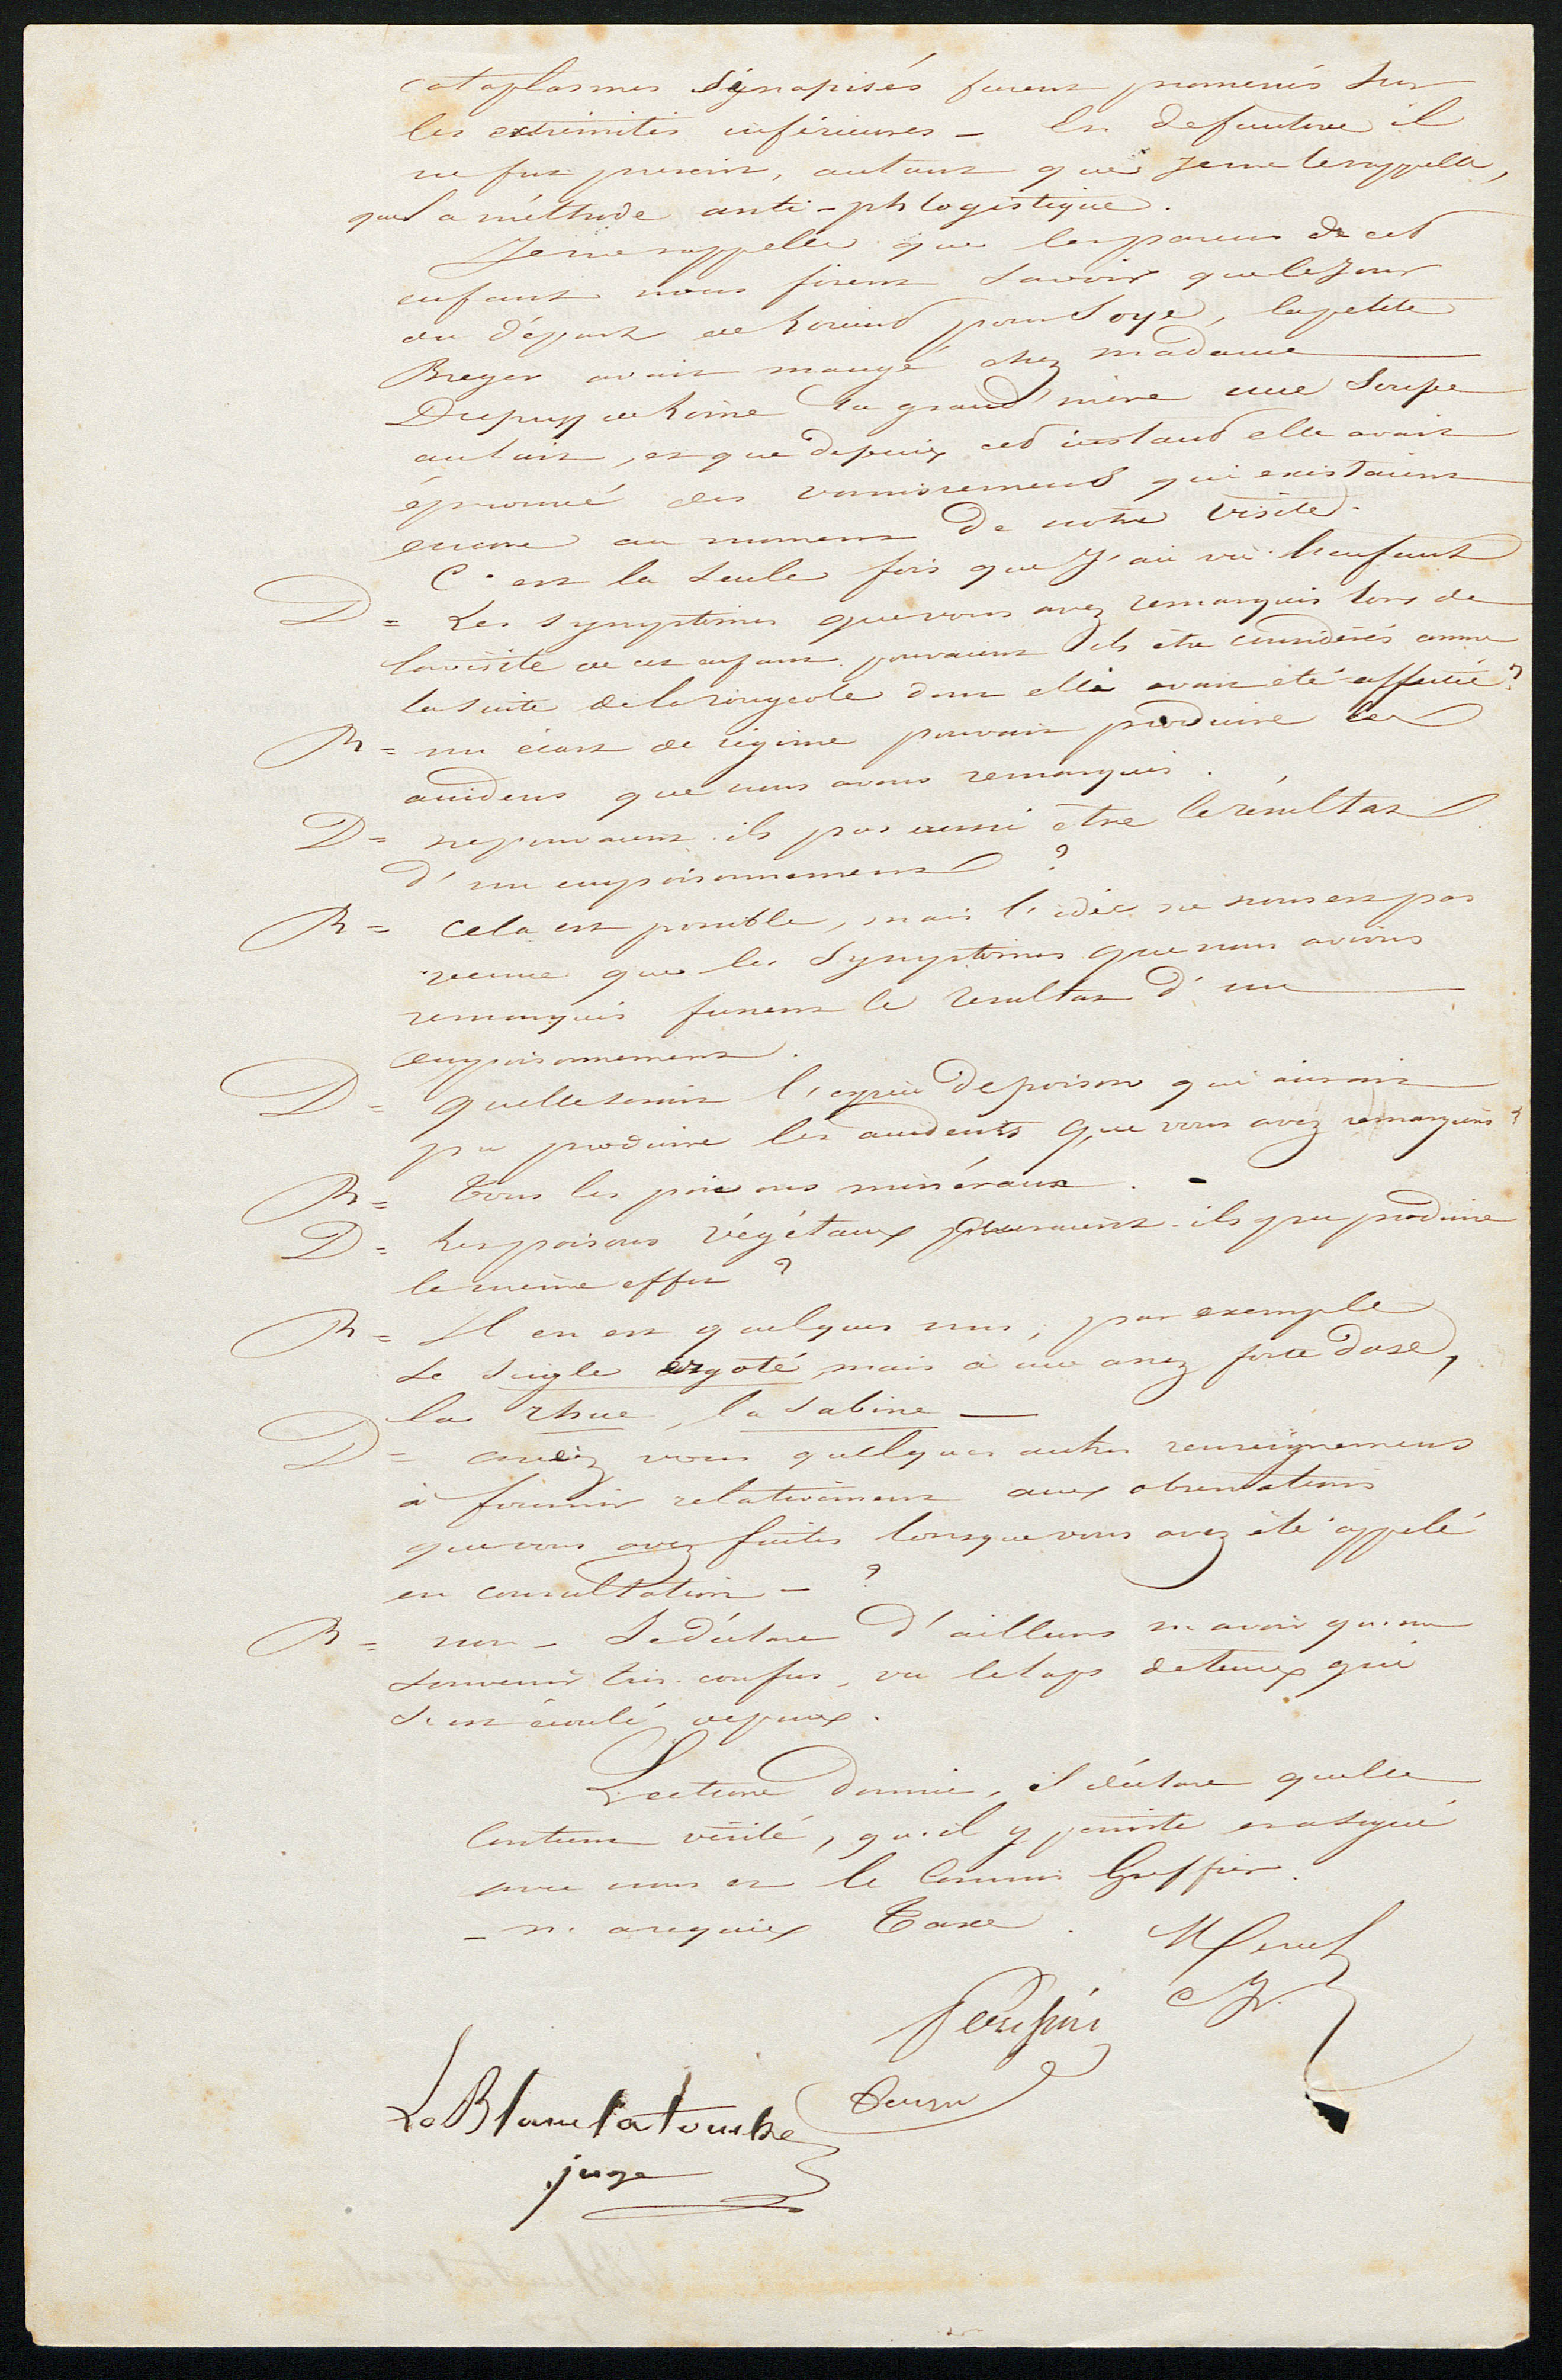 cataplasmes synapisés furent promenés sur
les extrémités inférieures – En definitive il
ne fut prescrit, autant que Je me le rappelle,
que la méthode anti-phlogistique.
Je me rappelle que les parens de cet
enfant nous firent savoir que le Jour
du départ de Lorient pour Soye, la petite
Breger avait mangé chez madame
Dupuy de Lôme sa grand'mère une soupe
au lait, et que depuis cet instant elle avait
éprouvé des vomissemens qui existaient
encore au moment de notre visite.
C'est la seule fois que J'ai vu l'enfant
D = Les symptômes que vous avez remarqués lors de
la visite de cet enfant pouvaient ils être considérés comme
la suite de la rougeole dont elle avait été affectée ?
R = un écart de régime pouvait produire les
accidens que nous avons remarqués.
D = ne pouvaient-ils pas aussi être le résultat
d'un empoisonnement ?
R = Cela est possible, mais l'idée ne nous est pas
venue que les symptômes que nous avions
remarqués fussent le résultat d'un
empoisonnement.
D = quelle serait l'espèce de poison qui aurait
pu produire les accidents que vous avez remarqués ?
R = Tous les poisons minéraux. –
D = Les poisons végétaux auraient-ils pu produire
le même effet ?
R = Il en est quelques uns, par exemple
Le seigle ergoté, mais à une assez forte dose,
la rhue, la sabine –
D = avez vous quelques autres renseignemens
à fournir relativement aux observations
que vous avez faites lorsque vous avez été appelé
en consultation – ?
R = non – Je déclare d'ailleurs n'avoir qu'un
souvenir très confus, vu le laps de temps qui
s'est écoulé depuis.
Lecture donnée, il déclare qu'elle
Contient vérité, qu'il y persiste et a signé
avec nous et le Commis Greffier.
– n'a requis Taxe.
Le Blanc latouche
juge